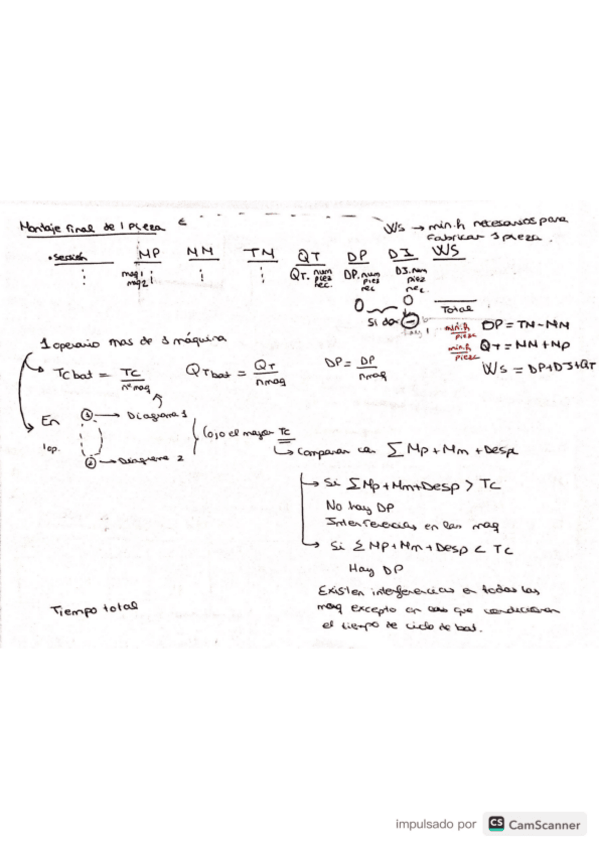 Montaje Final de 1 Pieza
WS → min.h necesarios para
Fabricar 1 pieza.
• sección MP MM TM QT DP DI WS
maq 1
maq 2
QT. num piez nec.
DP. num piez nec
DI. num piez nec.
0 0
Si da ⊖
Total
min.h pieza
DP = TM - MM
1 operario mas de 1 máquina
min.h pieza
QT = MM + MP
WS = DP + DI + QT
Tc bat = Tc / nº maq
QT bat = QT / n maq
DP = DP / n maq
En ① → Diagrama 1
1 op. ② → Diagrama 2
Cojo el mayor Tc
→ Comparar con ∑ Mp + Mm + Despl
→ Si ∑ Mp + Mm + Despl > Tc
No hay DP
Interferencias en las maq
→ Si ∑ Mp + Mm + Desp < Tc
Hay DP
Existen interferencias en todas las
Tiempo total
maq excepto en las que condicionan
el tiempo de ciclo de bat.
impulsado por CS CamScanner